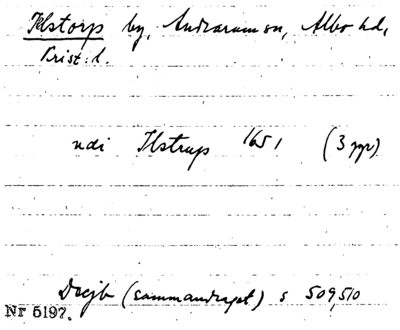 Ilstorps by, Andrarum sn, Albo hd,
Krist. l.
udi Ilstrup 1651 (3 ggr)
Dsejb (sammandraget) s 509,510
Nr 5197.